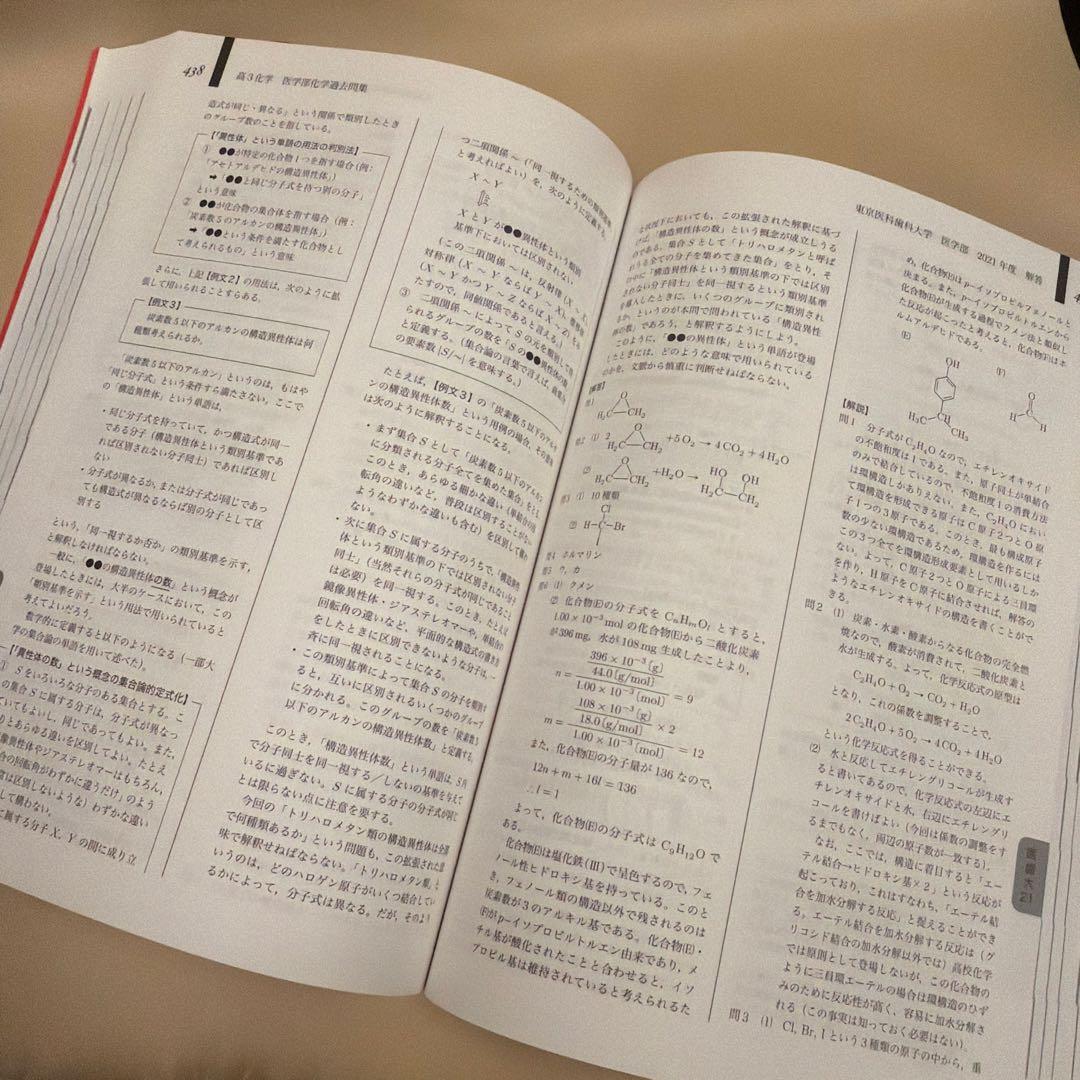 438
高3化学 医学部化学過去問集
造式が同じ・異なる」という関係で類別したとき
のグループ数のことを指している。
【「異性体」という単語の用法の判別法】
① ●●が特定の化合物1つを指す場合(例:
「アセトアルデヒドの構造異性体」)
➡「●●と同じ分子式を持つ別の分子」
という意味
② ●●が化合物の集合体を指す場合(例:
「炭素数5のアルカンの構造異性体」)
➡「●●という条件を満たす化合物とし
て考えられるもの」という意味
さらに、上記【例文2】の用法は、次のように拡
張して用いられることすらある。
【例文3】
炭素数5以下のアルカンの構造異性体は何
種類考えられるか。
「炭素数5以下のアルカン」というのは、もはや
「同じ分子式」という条件すら満たさない。ここで
の「構造異性体」という単語は、
・同じ分子式を持っていて、かつ構造式が同一
である分子(構造異性体という類別基準であ
れば区別されない分子同士)であれば区別し
ない
・分子式が異なるか、または分子式が同じであっ
ても構造式が異なるならば別の分子として区
別する
という、「同一視するか否か」の類別基準を示す、
と解釈しなければならない。
一般に、「●●の構造異性体の数」という概念が
登場したときには、大半のケースにおいて、この
「類別基準を示す」という用法で用いられていると
考えてよいだろう。
数学的に定義すると以下のようになる(一部大
学の集合論の単語を用いて述べた)。
【「異性体の数」という概念の集合論的定式化】
① Sをいろいろな分子のある集合とする。こ
の集合Sに属する分子は、分子式が異なっ
ていてもよいし、同じであってもよい。また、
りとあらゆる違いを区別してよい。たとえ
像異性体やジアステレオマーはもちろん、
合の回転角がわずかに違うだけ」のよう
は区別しないような)わずかな違い
して構わない。
に属する分子X、Yの間に成り立
つ二項関係~(「同一視するための類別基準」
と考えればよい)を、次のように定義する。
X~Y
XとYが●●異性体という類別
基準下においては区別されない
(この二項関係~は、反射律(X~X)、
対称律(X~YならばY~X)、推移律
(X~YかつY~ZならばX~Z)をみ
たすので、同値関係であると言える。)
③ 二項関係~によってSの元を類別して得
られるグループの数を「Sの●●異性体の数」
と定義する。(集合論の言葉で言えば、商集合
の要素数|S/~|を意味する。)
たとえば、【例文3】の「炭素数5以下のアルカ
ンの構造異性体数」という用例の場合、その意味
は次のように解釈することになる。
・まず集合Sとして「炭素数5以下のアルカン
に分類される分子全てを集めた集合」をとる。
このとき、あらゆる細かな違い(単結合の回
転角の違いなど、普段は区別することがない
ようなわずかな違いも含む)を区別して構わ
ない。
・次に集合Sに属する分子のうちで、「構造異性
体という類別基準の下では区別されない分子
同士」(当然それらの分子式が同じであること
は必要)を同一視する。このとき、たとえば
鏡像異性体・ジアステレオマーや、単結合の
回転角の違いなど、平面的な構造式の書き方
をしたときに区別できないような分子は、一
斉に同一視されることになる。
・この類別基準によって集合Sの分子を類別す
ると、互いに区別されるいくつかのグループ
に分かれる。このグループの数を「炭素数5
以下のアルカンの構造異性体数」と定義する。
このとき、「構造異性体数」という単語は、S内
で分子同士を同一視する/しないの基準を与えて
いるに過ぎない。Sに属する分子の分子式が同じ
とは限らない点に注意を要する。
今回の「トリハロメタン類の構造異性体は全部
で何種類あるか」という問題も、この拡張された意
味で解釈せねばならない。「トリハロメタン類」と
いうのは、どのハロゲン原子がいくつ結合してい
るかによって、分子式は異なる。だが、そのよう
東京医科歯科大学 医学部 2021年度 解答
な状況下においても、この拡張された解釈に基づ
けば、「構造異性体の数」という概念が成立しうる
のである。集合Sとして「トリハロメタンと呼ば
れうる全ての分子を集めてきた集合」をとり、そ
の中に「構造異性体という類別基準の下では区別
されない分子同士」を同一視するという類別基準
を導入したときに、いくつのグループに類別され
るか、というのが本問で問われている「構造異性
体の数」であろう、と解釈するようにしよう。
このように、「●●の異性体」という単語が登場
したときには、どのような意味で用いられている
のかを、文脈から慎重に判断せねばならない。
【解答】
問1
O
H₂C CH₂
問2 (1) 2 O H₂C CH₂ +5O₂→4CO₂+4H₂O
(2) O H₂C CH₂ +H₂O→ HO OH H₂C-CH₂
問3 (1) 10種類
(2) Cl H-C-Br I
問4 ホルマリン
問5 ウ, カ
問6 (1) クメン
(2) 化合物(E)の分子式をCₙHₘOₗとすると、
1.00×10⁻³molの化合物(E)から二酸化炭素
が396mg、水が108mg生成したことより、
n= 396×10⁻³[g] / 44.0[g/mol] / 1.00×10⁻³[mol] =9
m= 108×10⁻³[g] / 18.0[g/mol] ×2 / 1.00×10⁻³[mol] =12
また、化合物(E)の分子量が136なので、
12n+m+16l=136
∴l=1
よって、化合物(E)の分子式はC₉H₁₂Oで
ある。
化合物(E)は塩化鉄(III)で呈色するので、フェ
ノール性ヒドロキシ基を持っている。このと
き、フェノール類の構造以外で残されるのは
炭素数が3のアルキル基である。化合物(E)・
(F)がp-イソプロピルトルエン由来であり、メ
チル基が酸化されたことと合わせると、イソ
プロピル基は維持されていると考えられるた
め、化合物(E)はp-イソプロピルフェノールと
決まる。また、p-イソプロピルトルエンから
化合物(E)が生成する過程でクメン法と類似し
た反応が起こったと考えると、化合物(F)はホ
ルムアルデヒドである。
(E) (F)
OH
H₃C CH CH₃
O
H H
【解説】
問1
分子式がC₂H₄Oなので、エチレンオキサイド
の不飽和度は1である。また、原子同士が単結合
のみで結合しているので、不飽和度1の消費方法
は環構造しかありえない。また、C₂H₄Oにおい
て環構造を形成できる原子はC原子2つとO原
子1つの3原子である。このとき、最も構成原子
数の少ない環構造であるため、環構造を作るには
この3つ全てを環構造形成要素として用いるしか
ない。よって、C原子2つとO原子による三員環
を作り、H原子をC原子に結合させれば、解答の
ようなエチレンオキサイドの構造を書くことがで
きる。
問2
(1) 炭素・水素・酸素からなる化合物の完全燃
焼なので、酸素が消費されて、二酸化炭素と
水が生成する。よって、化学反応式の原型は
C₂H₄O+O₂→CO₂+H₂O
となり、これの係数を調整することで、
2C₂H₄O+5O₂→4CO₂+4H₂O
という化学反応式を得ることができる。
(2) 水と反応してエチレングリコールが生成す
ると書いてあるので、化学反応式の左辺にエ
チレンオキサイドと水、右辺にエチレングリ
コールを書けばよい(今回は係数の調整をす
るまでもなく、両辺の原子数が一致する)。
なお、ここでは、構造に着目すると「エー
テル結合→ヒドロキシ基×2」という反応が
起こっており、これはすなわち、「エーテル結
合を加水分解する反応」と捉えることができ
る。エーテル結合を加水分解する反応は(グ
リコシド結合の加水分解以外では)高校化学
では原則として登場しないが、この化合物の
ように三員環エーテルの場合は環構造のひず
みのために反応性が高く、容易に加水分解さ
れる(この事実は知っておく必要はない)。
問3 (1) Cl, Br, Iという3種類の原子の中から、重
医歯大21